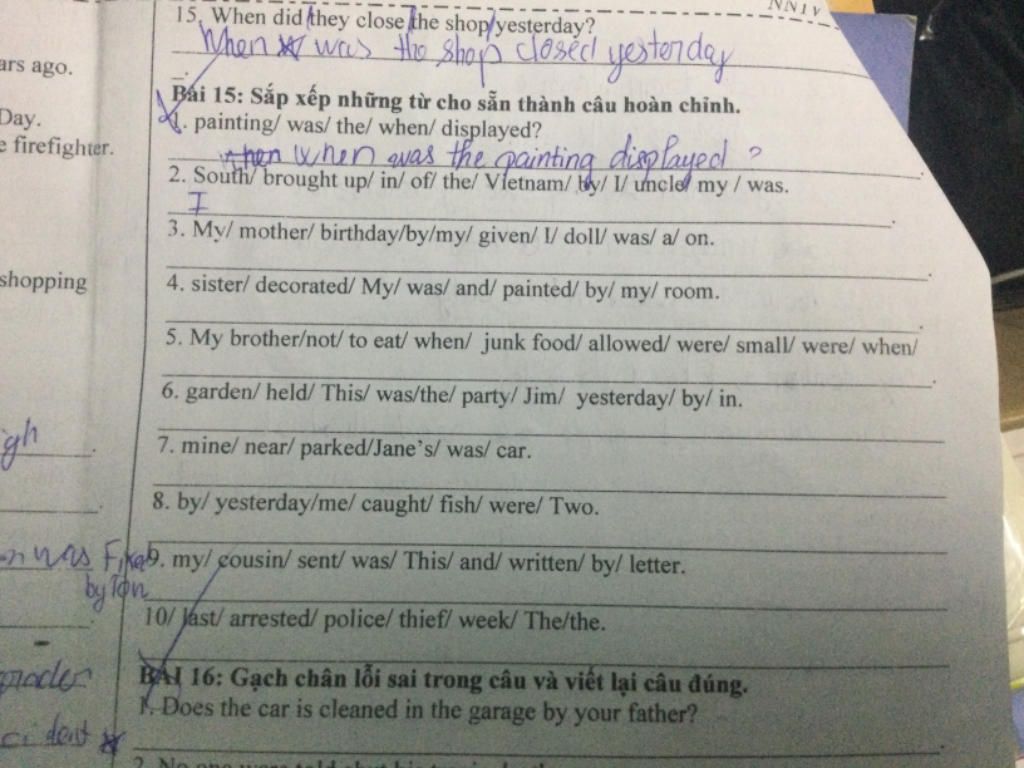 NN1V
15. When did they close the shop yesterday?
ars ago.
When was the shop closed yesterday
Bài 15: Sắp xếp những từ cho sẵn thành câu hoàn chỉnh.
Day.
1. painting/ was/ the/ when/ displayed?
e firefighter.
when was the painting displayed ?
2. South/ brought up/ in/ of/ the/ Vietnam/ by/ I/ uncle/ my / was.
I
3. My/ mother/ birthday/by/my/ given/ I/ doll/ was/ a/ on.
shopping
4. sister/ decorated/ My/ was/ and/ painted/ by/ my/ room.
5. My brother/not/ to eat/ when/ junk food/ allowed/ were/ small/ were/ when/
6. garden/ held/ This/ was/the/ party/ Jim/ yesterday/ by/ in.
igh
7. mine/ near/ parked/Jane's/ was/ car.
8. by/ yesterday/me/ caught/ fish/ were/ Two.
was Fixed
9. my/ cousin/ sent/ was/ This/ and/ written/ by/ letter.
by Ton
10/ last/ arrested/ police/ thief/ week/ The/the.
BÀI 16: Gạch chân lỗi sai trong câu và viết lại câu đúng.
1. Does the car is cleaned in the garage by your father?
cident
2. No one were told